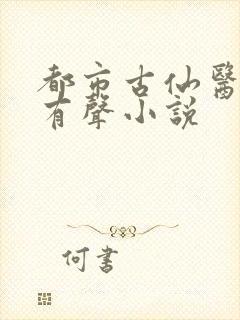 都市古仙醫
有聲小説
何書